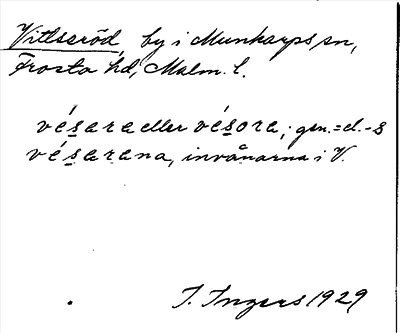 Vitlseröd, by i Munkarps sn,
Frosta hd, Malm. l.
vésara eller vésora; gen. = d. -s
vésarana, invånarna i V.
I. Ingers 1929